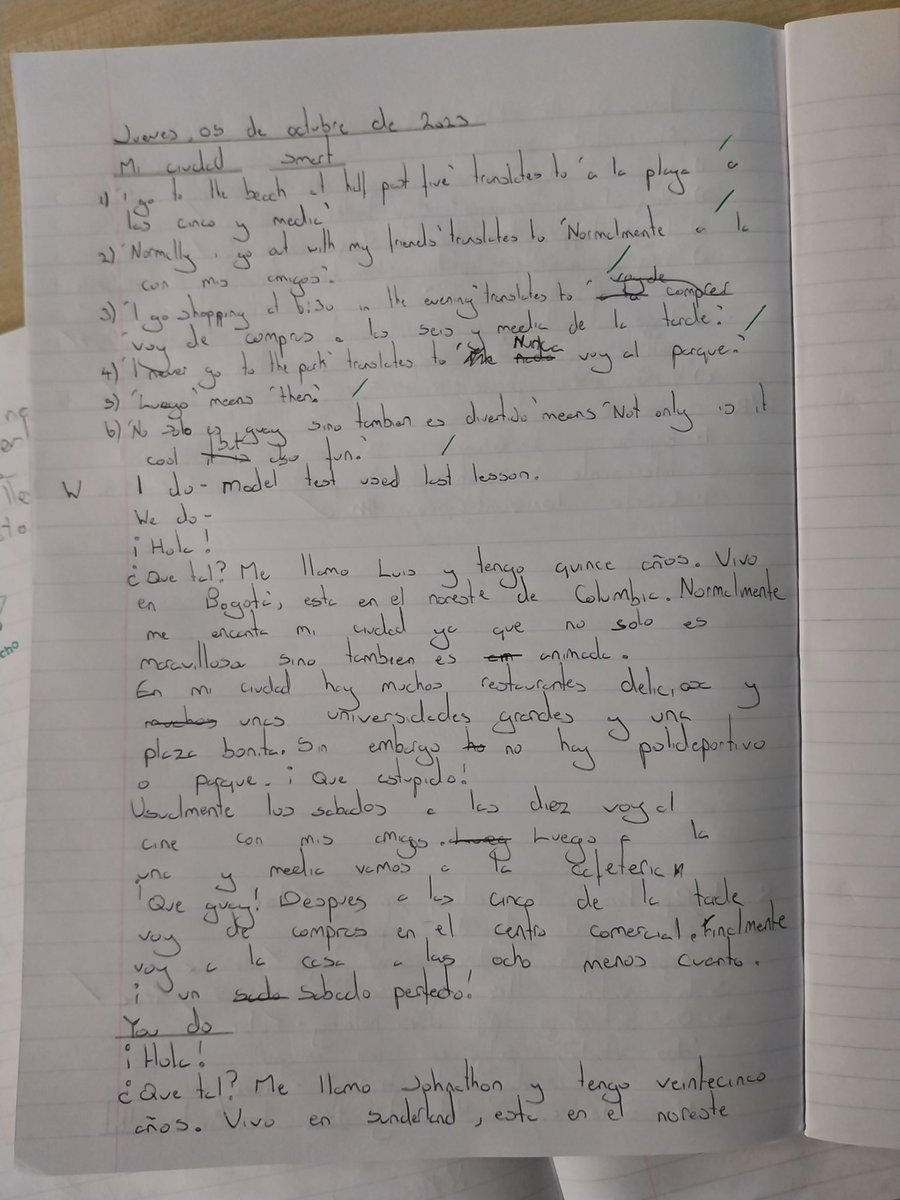 Jueves, 05 de octubre de 2023
Mi ciudad smart
1) 'i go to the beach at half past five' translates to 'a la playa a
las cinco y media'
2) 'Normally i go out with my friends' translates to 'Normalmente a la
con mis amigos'.
3) 'I go shopping at 6:30 in the evening' translates to '
'voy de compras a las seis y media de la tarde.'
4) 'I never go to the park' translates to ' Nunca voy al parque.'
5) 'Luego' means 'then.'
6) 'No solo es guay sino tambien es divertido' means 'Not only is it
cool but also fun.'
W I do - model text used last lesson.
We do -
¡Hola!
¿Que tal? Me llamo Luis y tengo quince años. Vivo
en Bogotá, esta en el noreste de Columbia. Normalmente
me encanta mi ciudad ya que no solo es
maravillosa sino tambien es animada.
En mi ciudad hay muchos restaurantes y
unas universidades grandes y una
plaza bonita. Sin embargo no hay polideportivo
o parque. ¡Que estupido!
Usualmente los sabados a las diez voy al
cine con mis amigos. Luego a la
una y media vamos a la cafeteria
¡Que guay! Despues a las cinco de la tarde
voy de compras en el centro comercial. Finalmente
voy a la casa a las ocho menos cuanto.
¡un sabado perfecto!
You do
¡Hola!
¿Que tal? Me llamo Johnathon y tengo veintecinco
años. Vivo en Sunderland, esta en el noreste